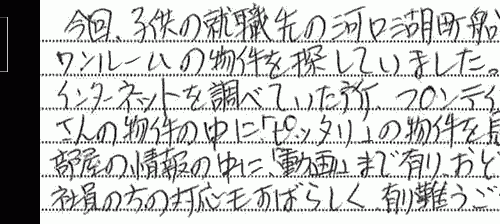 今回、子供の就職先の河口湖町船
ワンルームの物件を探していました。
インターネットを調べていた所、フロンティ
さんの物件の中に「ピッタリ」の物件を見
部屋の情報の中に「動画」まで有り、おど
社員の方の対応もすばらしく、有り難うご